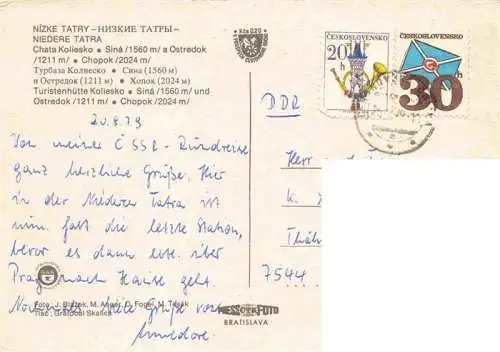 NÍZKE TATRY – НИЗКИЕ ТАТРЫ –
NIEDERE TATRA
Chata Koliesko • Siná /1560 m/ a Ostredok
/1211 m/ • Chopok /2024 m/
Турбаза Колиеско • Сина (1560 м)
и Остредок (1211 м) • Хопок (2024 м)
Turistenhütte Koliesko • Siná /1560 m/ und
Ostredok /1211 m/ • Chopok /2024 m/
Kčs 0,20
ČESKOSLOVENSKO
20 h
ČESKOSLOVENSKO
30 h
20.8.79
Von meiner ČSSR-Rundreise
ganz herzliche Grüße. Hier
in der Niederen Tatra ist
nun fast die letzte Station,
bevor es dann über
Prag nach Hause geht.
viele Grüße von
DDR
Herr
7544
Foto: J. Blažek, M. Anger, O. Fogel, M. Tesák
Tlač: Grafobal Skalica
PRESSFOTO
BRATISLAVA